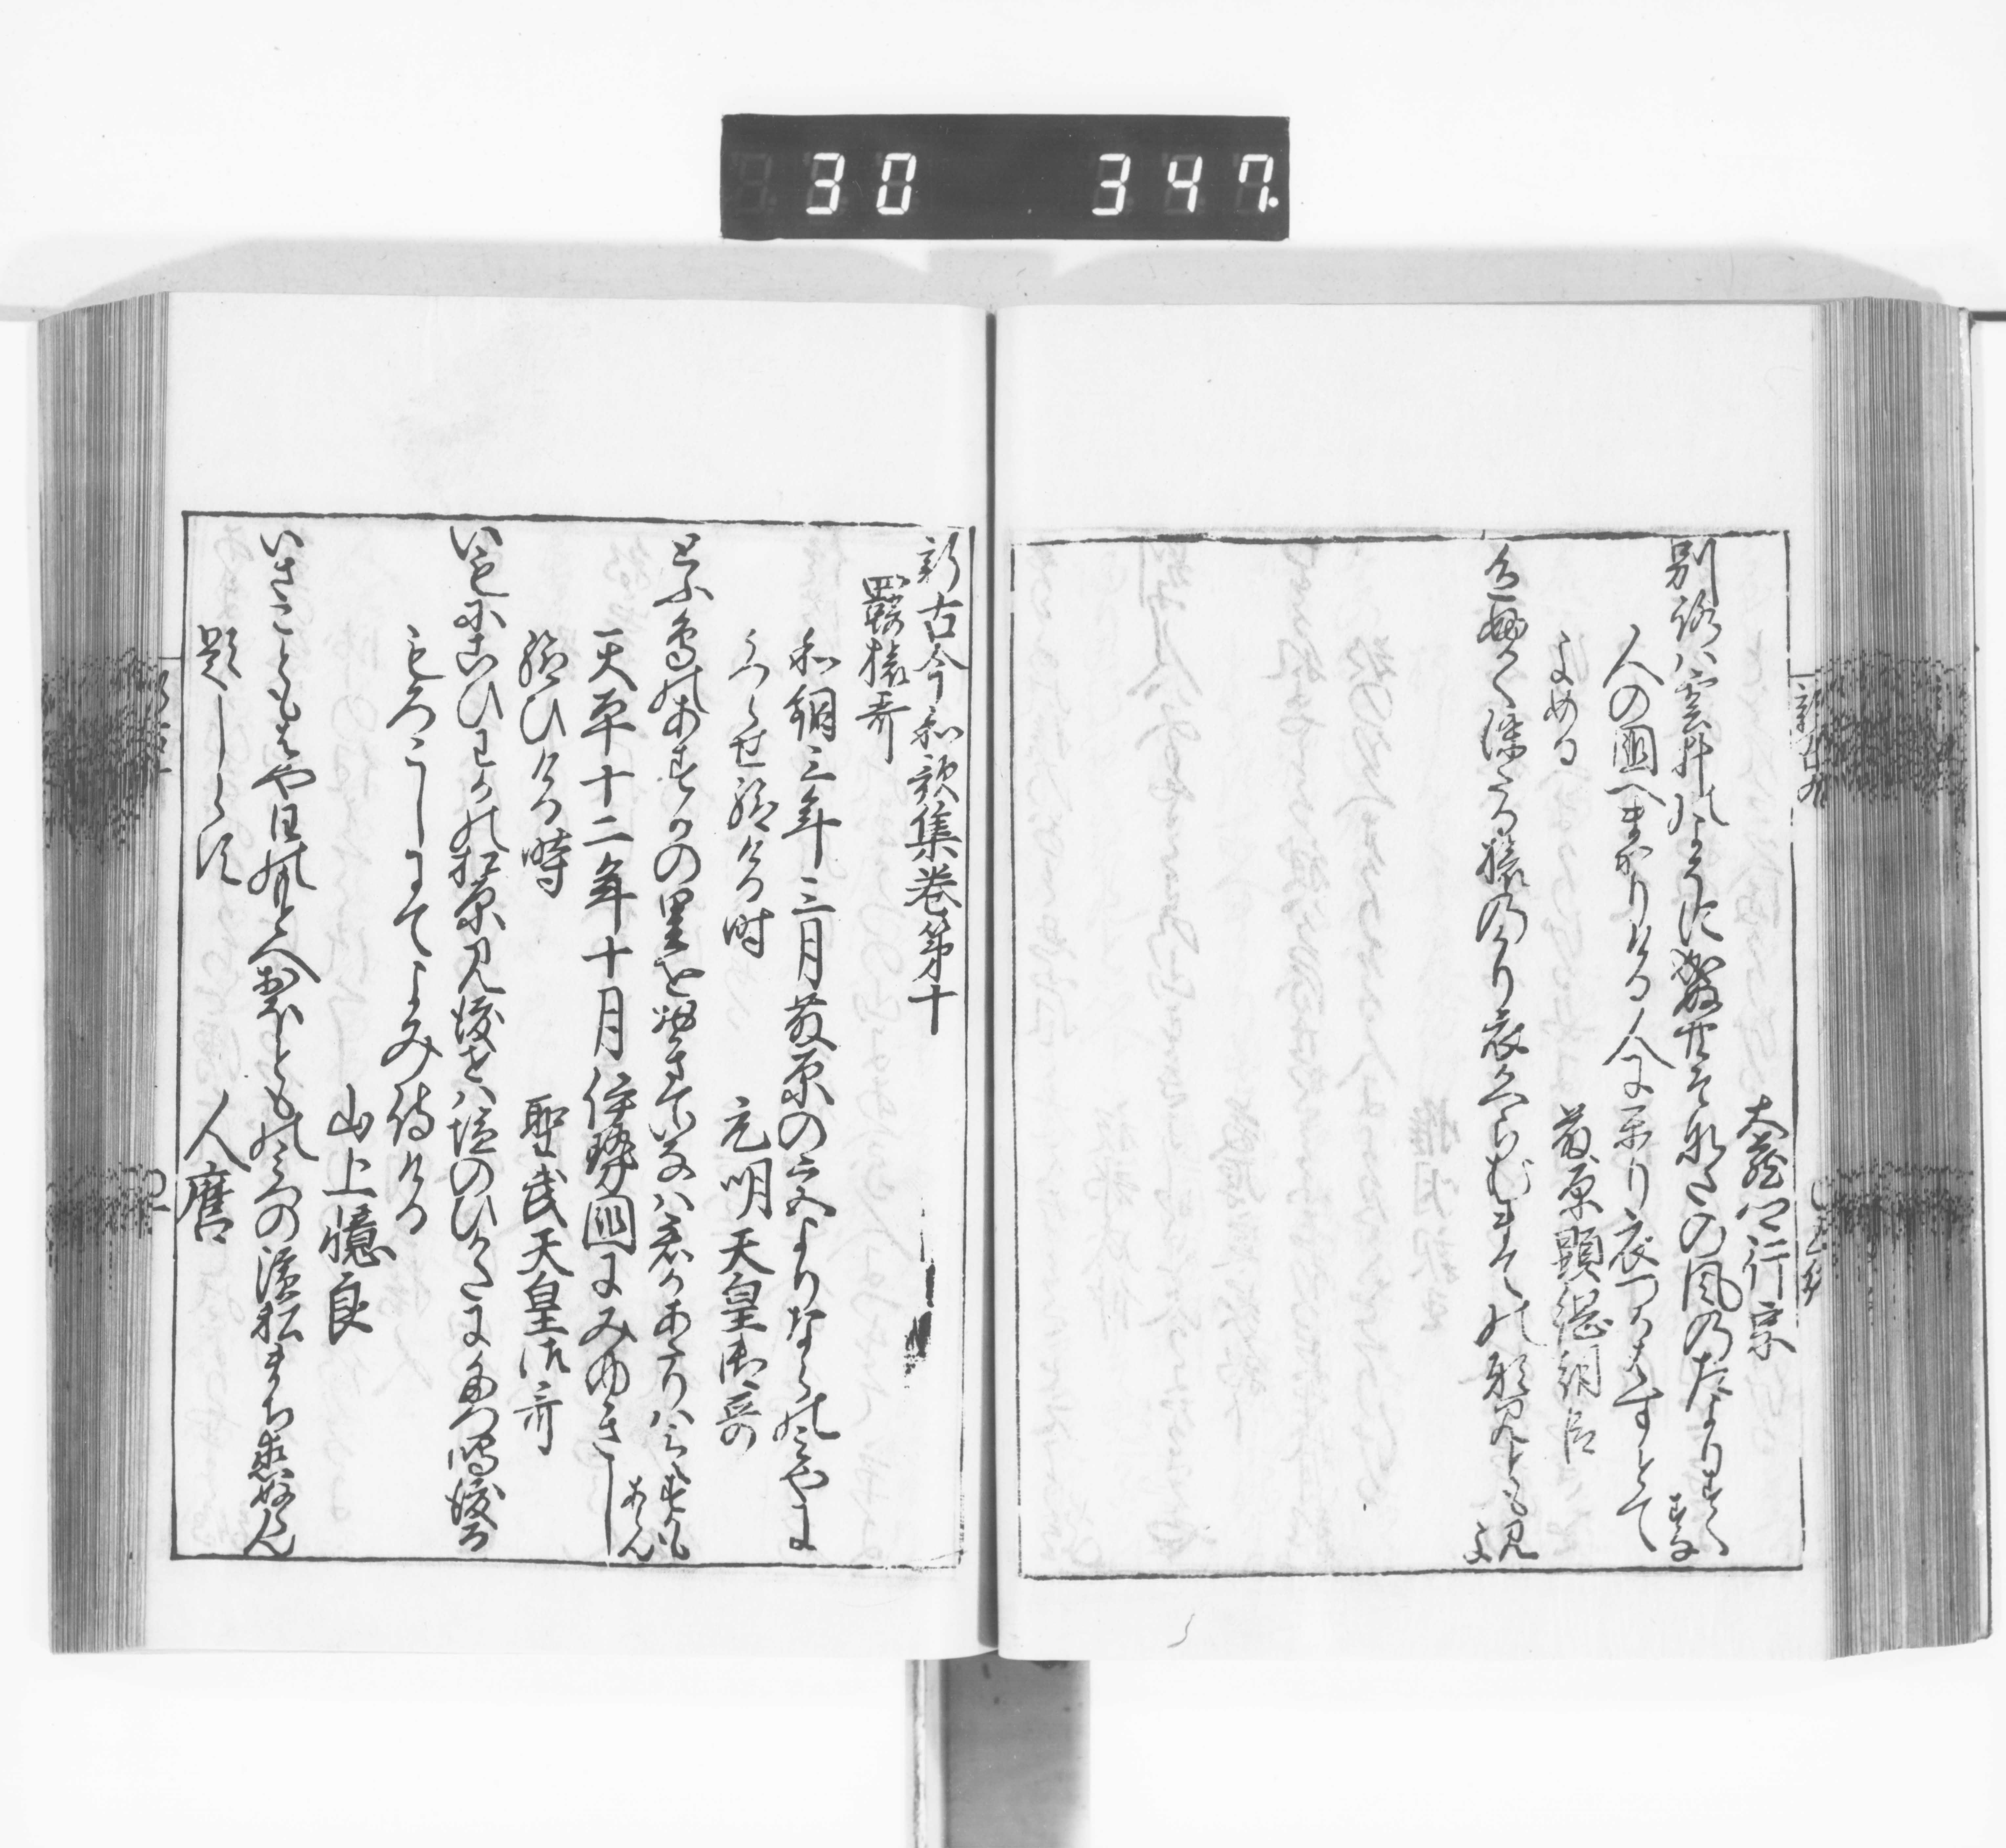 30 347
新古九
大蔵卿行宗
別路ハ雲井のよそに成ぬ共そなたの風のたよりすくすな
人の国へまかりける人に狩り衣つかハすとて
よめる 藤原顕綱朝臣
色ふかく染たる旅のかり衣かへらむまての形見とも見よ
新古今和歌集巻第十
羇旅哥
和銅三年三月藤原の宮よりならの宮に
うつらせ給ける時 元明天皇御哥
とふ鳥のあすかの里ををきていなハ君かあたりハみえすかもあらん
天平十二年十月伊勢国にみゆきし
給ひける時 聖武天皇御哥
いもにこひわかの松原見渡せハ塩のひかたにたつ鳴渡る
もろこしにてよみ侍ける
山上憶良
いさこともはや日のもとへおほとものみつの濱松まち恋ぬらん
題しらす 人麿